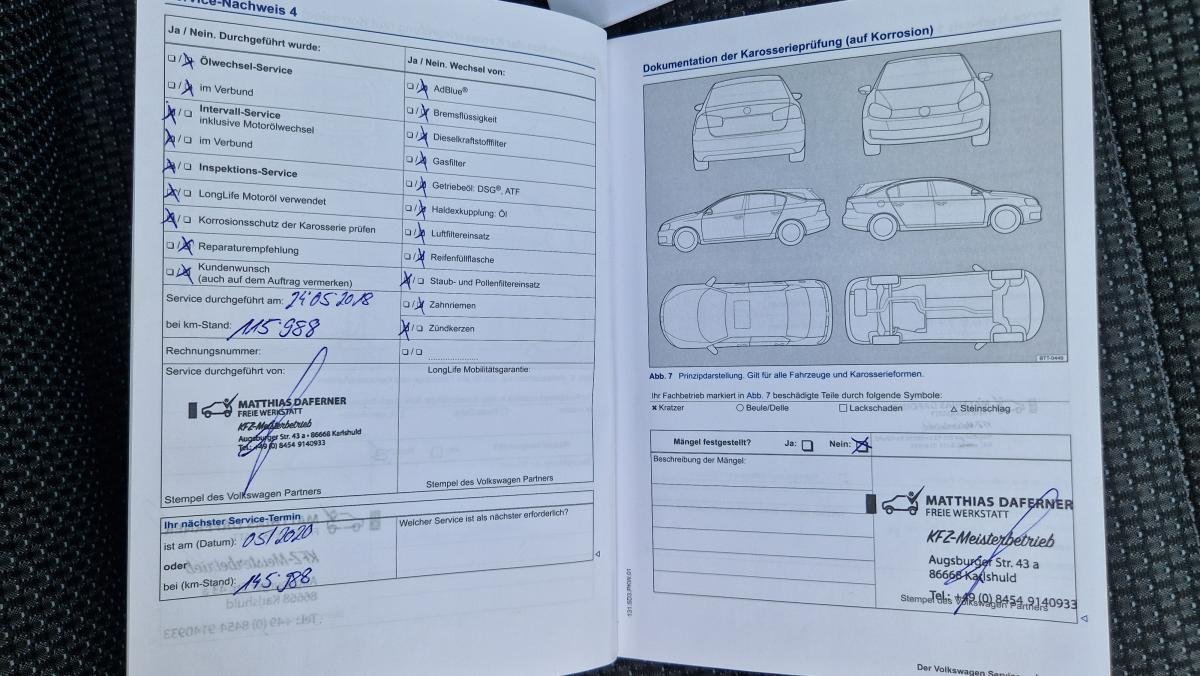 Service-Nachweis 4
Ja / Nein. Durchgeführt wurde:
❑/❑ Ölwechsel-Service
❑/❑ im Verbund
❑/❑ Intervall-Service
inklusive Motorölwechsel
❑/❑ im Verbund
❑/❑ Inspektions-Service
❑/❑ LongLife Motoröl verwendet
❑/❑ Korrosionsschutz der Karosserie prüfen
❑/❑ Reparaturempfehlung
❑/❑ Kundenwunsch
(auch auf dem Auftrag vermerken)
Service durchgeführt am: 24 05 2018
bei km-Stand: 115.988
Rechnungsnummer:
Service durchgeführt von:
MATTHIAS DAFERNER
FREIE WERKSTATT
KFZ-Meisterbetrieb
Augsburger Str. 43 a • 86668 Karlshuld
Tel.: +49 (0) 8454 9140933
Stempel des Volkswagen Partners
Ja / Nein. Wechsel von:
❑/❑ AdBlue®
❑/❑ Bremsflüssigkeit
❑/❑ Dieselkraftstofffilter
❑/❑ Gasfilter
❑/❑ Getriebeöl: DSG®, ATF
❑/❑ Haldexkupplung: Öl
❑/❑ Luftfiltereinsatz
❑/❑ Reifenfüllflasche
❑/❑ Staub- und Pollenfiltereinsatz
❑/❑ Zahnriemen
❑/❑ Zündkerzen
❑/❑ ....................
LongLife Mobilitätsgarantie:
Stempel des Volkswagen Partners
Ihr nächster Service-Termin
ist am (Datum): 05/2020
oder
bei (km-Stand): 145.988
Welcher Service ist als nächster erforderlich?
131.5D3.PKW.01
Dokumentation der Karosserieprüfung (auf Korrosion)
BTT-0449
Abb. 7 Prinzipdarstellung. Gilt für alle Fahrzeuge und Karosserieformen.
Ihr Fachbetrieb markiert in Abb. 7 beschädigte Teile durch folgende Symbole:
✖ Kratzer ○ Beule/Delle □ Lackschaden △ Steinschlag
Mängel festgestellt? Ja: ❑ Nein: ❑
Beschreibung der Mängel:
MATTHIAS DAFERNER
FREIE WERKSTATT
KFZ-Meisterbetrieb
Augsburger Str. 43 a
86668 Karlshuld
Tel.: +49 (0) 8454 9140933
Stempel des Volkswagen Partners
Der Volkswagen